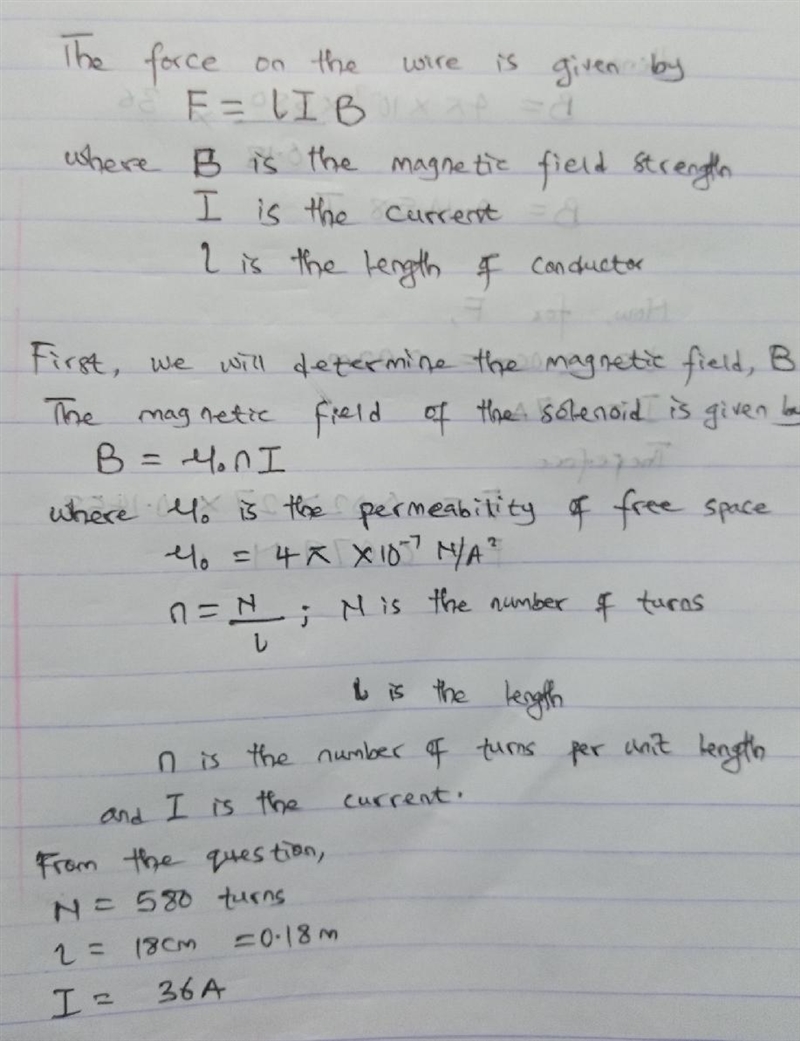 The force on the wire is given by
F = l I B
where B is the magnetic field strength
I is the current
l is the length of conductor
First, we will determine the magnetic field, B
The magnetic field of the solenoid is given by
B = μ₀ n I
where μ₀ is the permeability of free space
μ₀ = 4π × 10⁻⁷ N/A²
n = N/l ; N is the number of turns
l is the length
n is the number of turns per unit length
and I is the current.
From the question,
N = 580 turns
l = 18cm = 0.18m
I = 36A